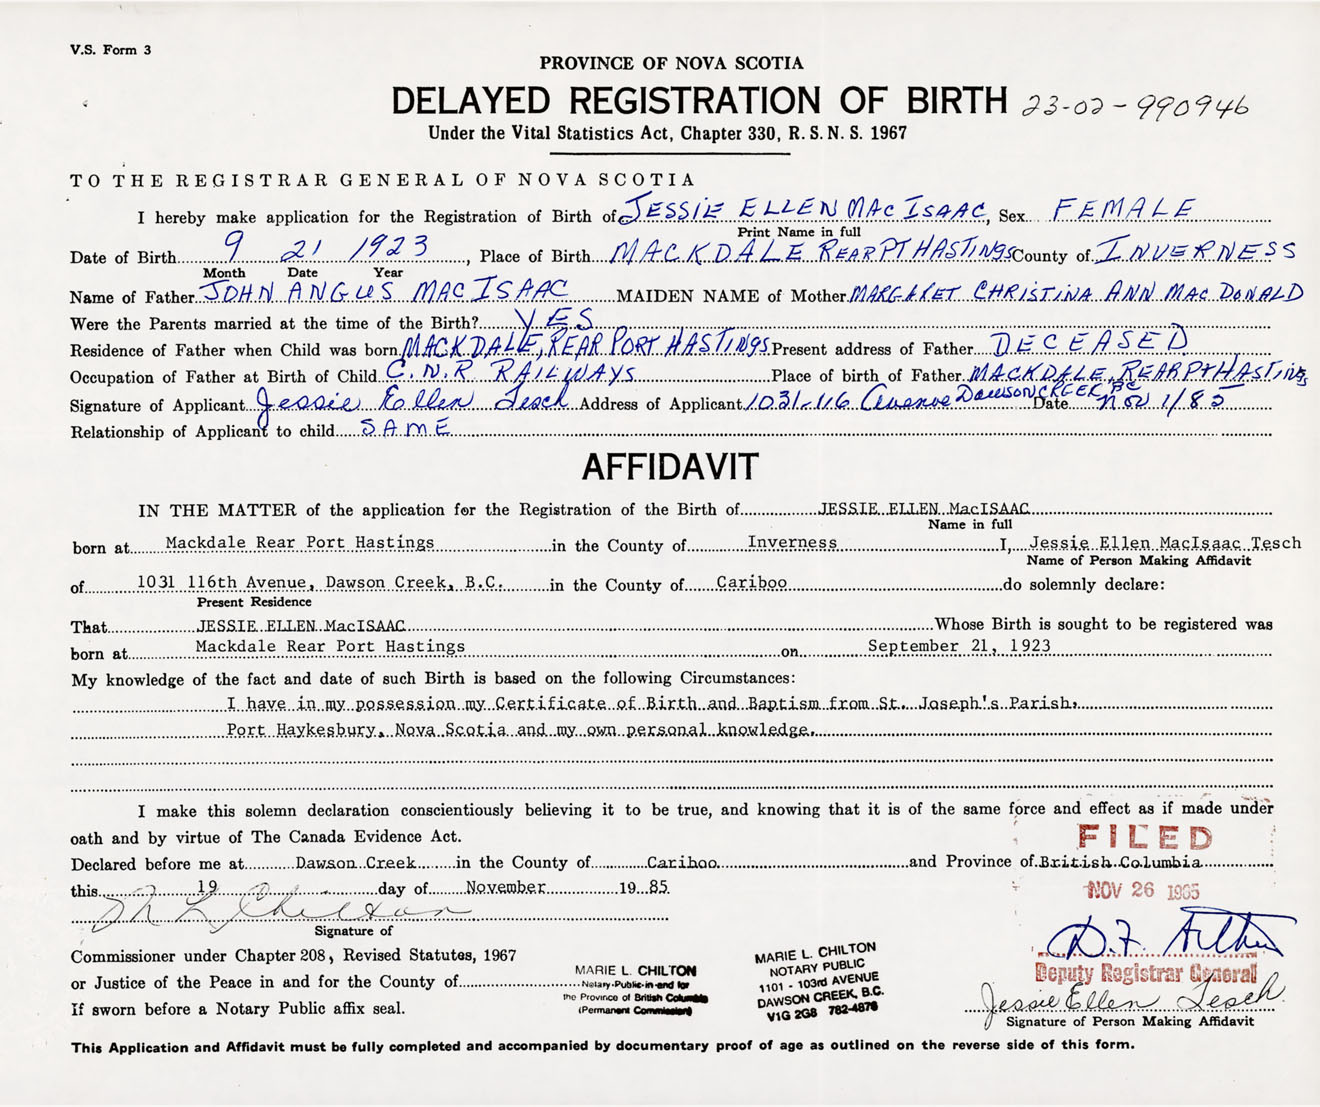 V.S. Form 3
PROVINCE OF NOVA SCOTIA
DELAYED REGISTRATION OF BIRTH 23-02-990946
Under the Vital Statistics Act, Chapter 330, R.S.N.S. 1967
TO THE REGISTRAR GENERAL OF NOVA SCOTIA
I hereby make application for the Registration of Birth of JESSIE ELLEN MACISAAC, Sex FEMALE
Print Name in full
Date of Birth 9 21 1923, Place of Birth MACKDALE REAR PT HASTINGS County of INVERNESS
Month Date Year
Name of Father JOHN ANGUS MACISAAC MAIDEN NAME of Mother MARGARET CHRISTINA ANN MACDONALD
Were the Parents married at the time of the Birth? YES
Residence of Father when Child was born MACKDALE, REAR PORT HASTINGS Present address of Father DECEASED
Occupation of Father at Birth of Child C.N.R RAILWAYS Place of birth of Father MACKDALE, REAR PT HASTINGS
Signature of Applicant Jessie Ellen Tesch Address of Applicant 1031-116 Avenue Dawson CREEK, BC Date Nov 1/85
Relationship of Applicant to child SAME
AFFIDAVIT
IN THE MATTER of the application for the Registration of the Birth of JESSIE ELLEN MacISAAC
Name in full
born at Mackdale Rear Port Hastings in the County of Inverness I, Jessie Ellen MacIsaac Tesch
Name of Person Making Affidavit
of 1031 116th Avenue, Dawson Creek, B.C. in the County of Cariboo do solemnly declare:
Present Residence
That JESSIE ELLEN MacISAAC Whose Birth is sought to be registered was
born at Mackdale Rear Port Hastings on September 21, 1923
My knowledge of the fact and date of such Birth is based on the following Circumstances:
I have in my possession my Certificate of Birth and Baptism from St. Joseph's Parish,
Port Haykesbury, Nova Scotia and my own personal knowledge.
I make this solemn declaration conscientiously believing it to be true, and knowing that it is of the same force and effect as if made under
oath and by virtue of The Canada Evidence Act.
FILED
Declared before me at Dawson Creek in the County of Cariboo and Province of British Columbia
this 19 day of November 1985
NOV 26 1985
M L Chilton
Signature of
Commissioner under Chapter 208, Revised Statutes, 1967
or Justice of the Peace in and for the County of
If sworn before a Notary Public affix seal.
MARIE L. CHILTON
Notary Public in and for
the Province of British Columbia
(Permanent Commission)
MARIE L. CHILTON
NOTARY PUBLIC
1101 - 103rd AVENUE
DAWSON CREEK, B.C.
V1G 2G8 782-4878
D.F.
Deputy Registrar General
Jessie Ellen Tesch
Signature of Person Making Affidavit
This Application and Affidavit must be fully completed and accompanied by documentary proof of age as outlined on the reverse side of this form.